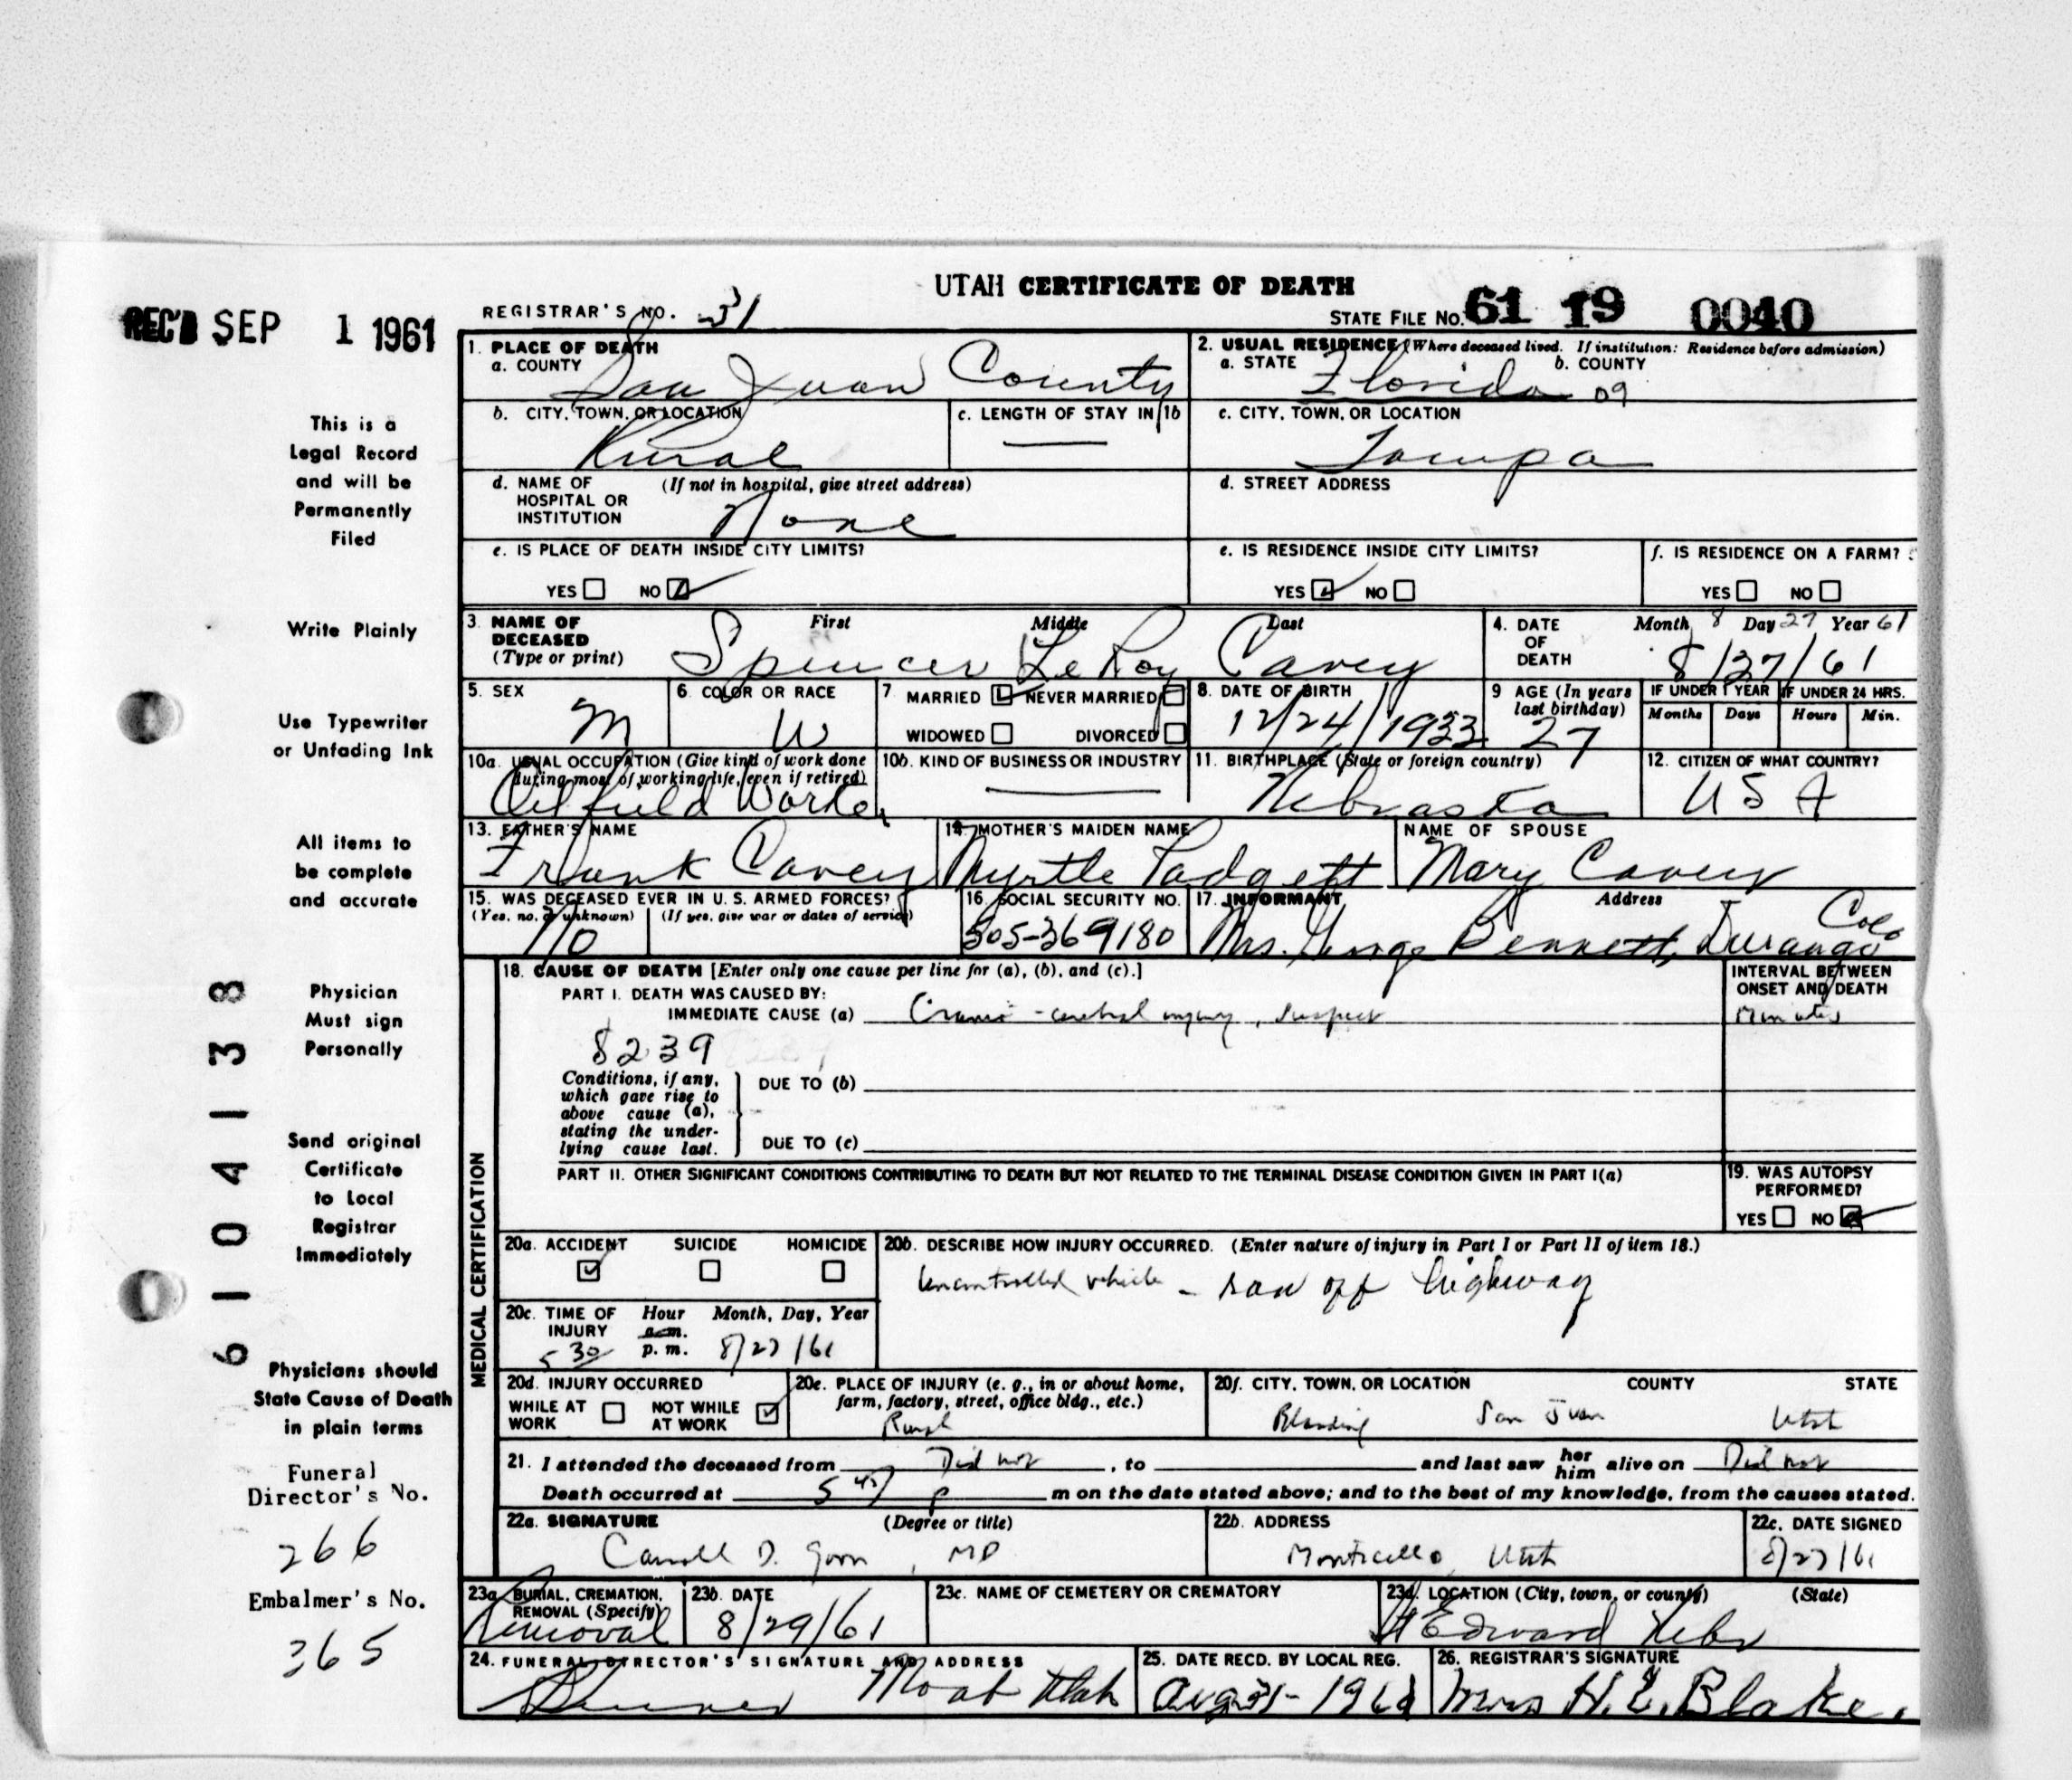 UTAH CERTIFICATE OF DEATH
REC'D SEP 1 1961
REGISTRAR'S NO. 31
STATE FILE NO. 61 19 0040
This is a
Legal Record
and will be
Permanently
Filed
Write Plainly
Use Typewriter
or Unfading Ink
All items to
be complete
and accurate
Physician
Must sign
Personally
Send original
Certificate
to Local
Registrar
Immediately
Physicians should
State Cause of Death
in plain terms
Funeral
Director's No.
266
Embalmer's No.
365
61 04138
1. PLACE OF DEATH
a. COUNTY San Juan County
2. USUAL RESIDENCE (Where deceased lived. If institution: Residence before admission)
a. STATE Florida 09 b. COUNTY
b. CITY, TOWN, OR LOCATION Rural
c. LENGTH OF STAY IN 1b —
c. CITY, TOWN, OR LOCATION Tampa
d. NAME OF HOSPITAL OR INSTITUTION (If not in hospital, give street address) None
d. STREET ADDRESS
e. IS PLACE OF DEATH INSIDE CITY LIMITS?
YES NO
e. IS RESIDENCE INSIDE CITY LIMITS?
YES NO
f. IS RESIDENCE ON A FARM?
YES NO
3. NAME OF DECEASED (Type or print) First Middle Last
Spencer LeRoy Cavey
4. DATE OF DEATH Month 8 Day 27 Year 61
8/27/61
5. SEX M
6. COLOR OR RACE W
7 MARRIED NEVER MARRIED
WIDOWED DIVORCED
8. DATE OF BIRTH 12/24/1933
9 AGE (In years last birthday) 27
IF UNDER 1 YEAR IF UNDER 24 HRS.
Months Days Hours Min.
10a. USUAL OCCUPATION (Give kind of work done during most of working life, even if retired)
Oilfield Worker
10b. KIND OF BUSINESS OR INDUSTRY —
11. BIRTHPLACE (State or foreign country) Nebraska
12. CITIZEN OF WHAT COUNTRY? USA
13. FATHER'S NAME Frank Cavey
14. MOTHER'S MAIDEN NAME Myrtle Padgett
NAME OF SPOUSE Mary Cavey
15. WAS DECEASED EVER IN U. S. ARMED FORCES?
(Yes, no, or unknown) (If yes, give war or dates of service)
No
16. SOCIAL SECURITY NO. 505-369180
17. INFORMANT Address
Mrs. George Bennett, Durango Colo
MEDICAL CERTIFICATION
18. CAUSE OF DEATH [Enter only one cause per line for (a), (b), and (c).]
INTERVAL BETWEEN ONSET AND DEATH
PART I. DEATH WAS CAUSED BY:
IMMEDIATE CAUSE (a) Cranio-cerebral injury, suspect Minutes
8239
Conditions, if any, which gave rise to above cause (a), stating the underlying cause last.
DUE TO (b)
DUE TO (c)
PART II. OTHER SIGNIFICANT CONDITIONS CONTRIBUTING TO DEATH BUT NOT RELATED TO THE TERMINAL DISEASE CONDITION GIVEN IN PART I(a)
19. WAS AUTOPSY PERFORMED?
YES NO
20a. ACCIDENT SUICIDE HOMICIDE
20b. DESCRIBE HOW INJURY OCCURRED. (Enter nature of injury in Part I or Part II of item 18.)
Uncontrolled vehicle - ran off highway
20c. TIME OF INJURY Hour a.m. p.m. Month, Day, Year
5 30 8/27/61
20d. INJURY OCCURRED
WHILE AT WORK NOT WHILE AT WORK
20e. PLACE OF INJURY (e. g., in or about home, farm, factory, street, office bldg., etc.)
Rural
20f. CITY, TOWN, OR LOCATION COUNTY STATE
Blanding San Juan Utah
21. I attended the deceased from Did not, to and last saw her him alive on Did not
Death occurred at 5 45 p m on the date stated above; and to the best of my knowledge, from the causes stated.
22a. SIGNATURE (Degree or title)
Carroll D. Goon, MD
22b. ADDRESS
Monticello, Utah
22c. DATE SIGNED
8/27/61
23a. BURIAL, CREMATION, REMOVAL (Specify)
Removal
23b. DATE
8/29/61
23c. NAME OF CEMETERY OR CREMATORY
23d. LOCATION (City, town, or county) (State)
St Edward Nebr
24. FUNERAL DIRECTOR'S SIGNATURE AND ADDRESS
Moab Utah
25. DATE RECD. BY LOCAL REG.
Aug 31 - 1961
26. REGISTRAR'S SIGNATURE
Mrs H. E. Blake.